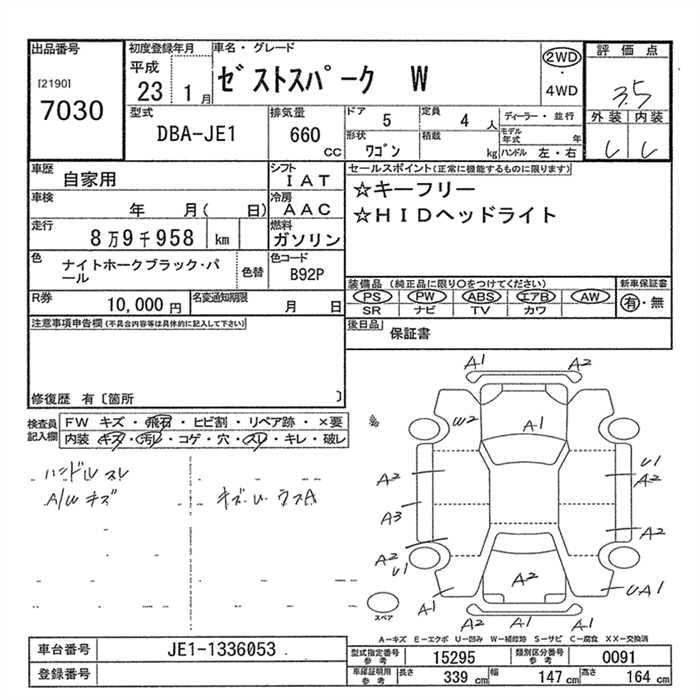 出品番号
[2190]
7030
初度登録年月
平成
23 1月
車名・グレード
ゼストスパーク W
2WD
・
4WD
評価点
3.5
外装 内装
型式
DBA-JE1
排気量
660
CC
ドア
5
定員
4人
ディーラー・並行
形状
ワゴン
積載
kg
モデル年式 年
ハンドル 左・右
車歴
自家用
シフト
IAT
車検
年 月( 日)
冷房
AAC
走行
8万9千958 km
燃料
ガソリン
色
ナイトホークブラック・パ
ール
色替
色コード
B92P
R券
10,000円
名変通知期限
月 日
セールスポイント(正常に機能するものに限ります)
☆キーフリー
☆HIDヘッドライト
装備品(純正品に限り○をつけてください)
PS PW ABS エアB AW
SR ナビ TV カワ
新車保証書
有・無
後日品
保証書
注意事項申告欄(不具合内容等は具体的に記入して下さい)
修復歴 有〔箇所 〕
検査員
記入欄
FW キズ・飛石・ヒビ割・リペア跡・×要
内装・キズ・汚レ・コゲ・穴・スレ・キレ・破レ
ハンドルスレ
A/Wキズ
A1
A2
W2
A1
A2
U1
A2
A3
A2
A2
U1
A2
A1
UA1
A2
A1
スペア
A-キズ E-エクボ U-凹み W-補修跡 S-サビ C-腐食 XX-交換済
車台番号
JE1-1336053
登録番号
型式指定番号
参考
15295
類別区分番号
参考
0091
車庫証明用
参考
長さ
339 cm
幅
147 cm
高さ
164 cm